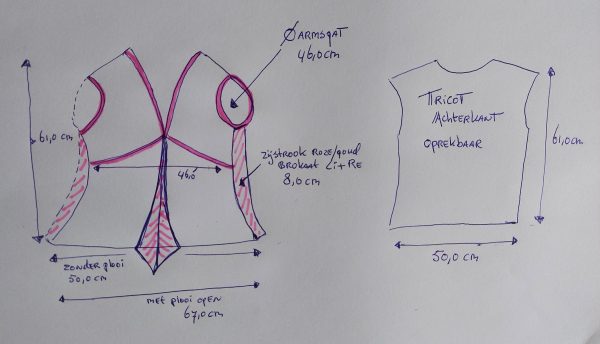 Ø ARMSGAT
46,0cm
61,0 cm
zijstrook roze/goud
BROKAAT Li+RE
8,0cm
46,0
zonder plooi
50,0cm
met plooi open
67,0cm
TRICOT
Achterkant
oprekbaar
61,0cm
50,0cm